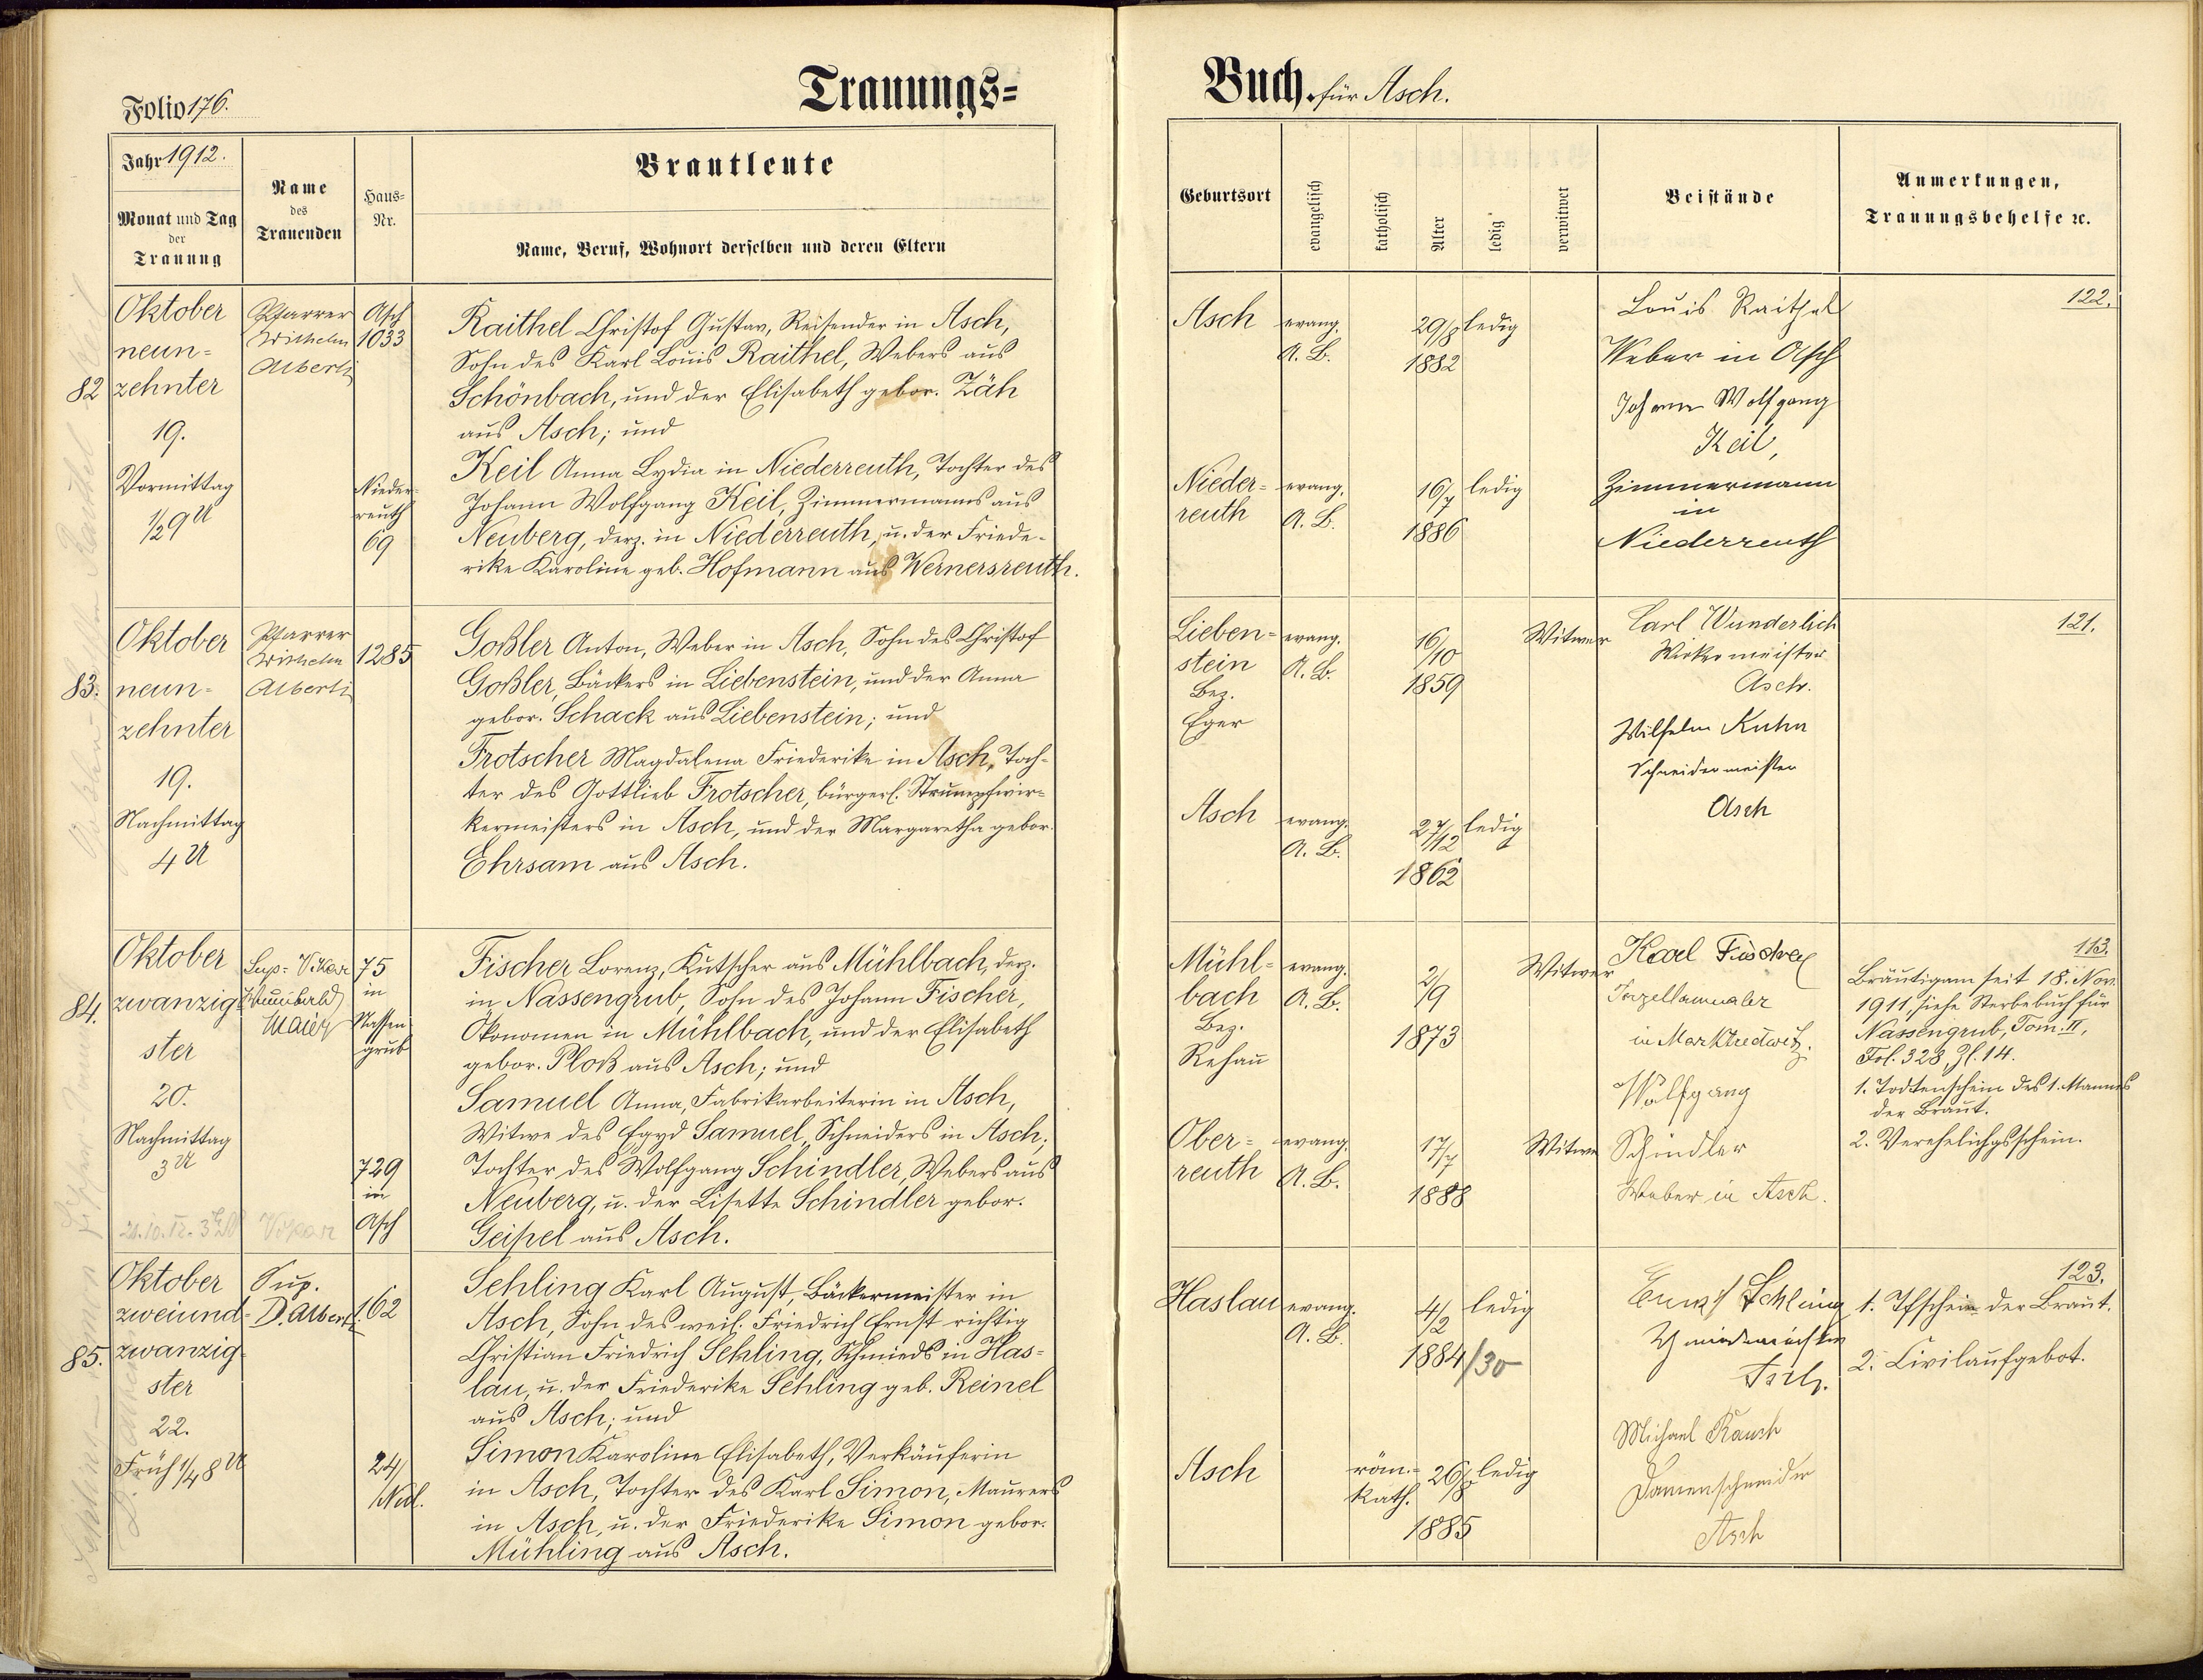 Folio 176.
Trauungs=
Buch für Asch.
Jahr 1912.
Monat und Tag
der
Trauung
Name
des
Trauenden
Haus=
Nr.
Brautleute
Name, Beruf, Wohnort derselben und deren Eltern
Geburtsort
evangelisch
katholisch
Alter
ledig
verwitwet
Beistände
Anmerkungen,
Trauungsbehelfe ꝛc.
82
Oktober
neun=
zehnter
19.
Vormittag
½9 U
Pfarrer
Wilhelm
Alberti
Asch
1033
Nieder-
reuth
69
Raithel Christof Gustav, Reisender in Asch,
Sohn des Karl Louis Raithel, Webers aus
Schönbach, und der Elisabeth gebor. Zäh
aus Asch; und
Keil Anna Lydia in Niederreuth, Tochter des
Johann Wolfgang Keil, Zimmermanns aus
Neuberg, derz. in Niederreuth, u. der Friede-
rike Karoline geb. Hofmann aus Wernersreuth.
Asch
evang.
A. B.
29/8
1882
ledig
Nieder=
reuth
evang.
A. B.
16/7
1886
ledig
Louis Raithel
Weber in Asch
Johann Wolfgang
Keil,
Zimmermann
in
Niederreuth
122.
83.
Oktober
neun=
zehnter
19.
Nachmittag
4 U
Pfarrer
Wilhelm
Alberti
1285
Goßler Anton, Weber in Asch, Sohn des Christof
Goßler, Bäckers in Liebenstein, und der Anna
gebor. Schack aus Liebenstein; und
Frotscher Magdalena Friederike in Asch, Toch-
ter des Gottlieb Frotscher, bürgerl. Strumpfwir-
kermeisters in Asch, und der Margaretha gebor.
Ehrsam aus Asch.
Lieben=
stein
Bez.
Eger
evang.
A. B.
16/10
1859
Witwer
Asch
evang.
A. B.
27/12
1862
ledig
Carl Wunderlich
Wirkermeister
Asch.
Wilhelm Kuhn
Schneidermeister
Asch
121.
84.
Oktober
zwanzig=
ster
20.
Nachmittag
3 U
Sup.= Vikar
Maier
75
in
Nassen
grub
729
in
Asch
Fischer Lorenz, Kutscher aus Mühlbach, derz.
in Nassengrub, Sohn des Johann Fischer,
Ökonomen in Mühlbach, und der Elisabeth
gebor. Ploß aus Asch; und
Samuel Anna, Fabrikarbeiterin in Asch,
Witwe des Egyd Samuel, Schneiders in Asch,
Tochter des Wolfgang Schindler, Webers aus
Neuberg, u. der Lisette Schindler gebor.
Geipel aus Asch.
Mühl=
bach
Bez.
Rehau
evang.
A. B.
2/9
1873
Witwer
Ober=
reuth
evang.
A. B.
17/7
1888
Witwe
Karl Fischer
in Marktredwitz.
Wolfgang
Schindler
Weber in Asch.
113.
Bräutigam seit 18. Nov.
1911, siehe Sterbebuch für
Nassengrub, Tom. II,
Fol. 328, Zl. 14.
1. Todtenschein des 1. Mannes
der Braut.
2. Verehelichgsschein.
85.
Oktober
zweiund=
zwanzig=
ster
22.
Früh ¼8 U
Sup.
D. Alberti
162
24/
Nedl.
Sehling Karl August, Bäckermeister in
Asch, Sohn des weil. Friedrich Ernst richtig
Christian Friedrich Sehling, Schmieds in Has-
lau, u. der Friederike Sehling geb. Reinel
aus Asch; und
Simon Karoline Elisabeth, Verkäuferin
in Asch, Tochter des Karl Simon, Maurers
in Asch, u. der Friederike Simon gebor.
Mühling aus Asch.
Haslau
evang.
A. B.
4/2
1884/30
ledig
Asch
röm.=
kath.
26/8
1885
ledig
Ernst Sehling
Schmiedmeister
Asch.
Michael Rausch
Damenschneider
Asch
123.
1. Tfschein der Braut.
2. Civilaufgebot.